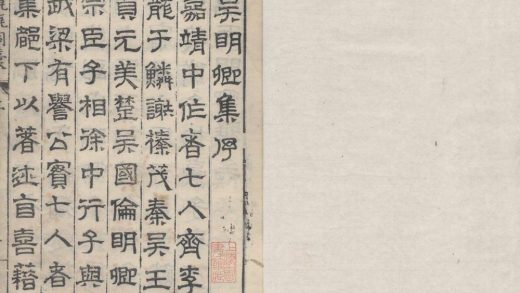 吳明卿集序
嘉靖中作者七人齊李
龍于鱗謝榛茂秦吳王
貞元美楚吳國倫明卿
宗臣子相徐中行子與
越梁有譽公實七人者
集下以著述自喜藉